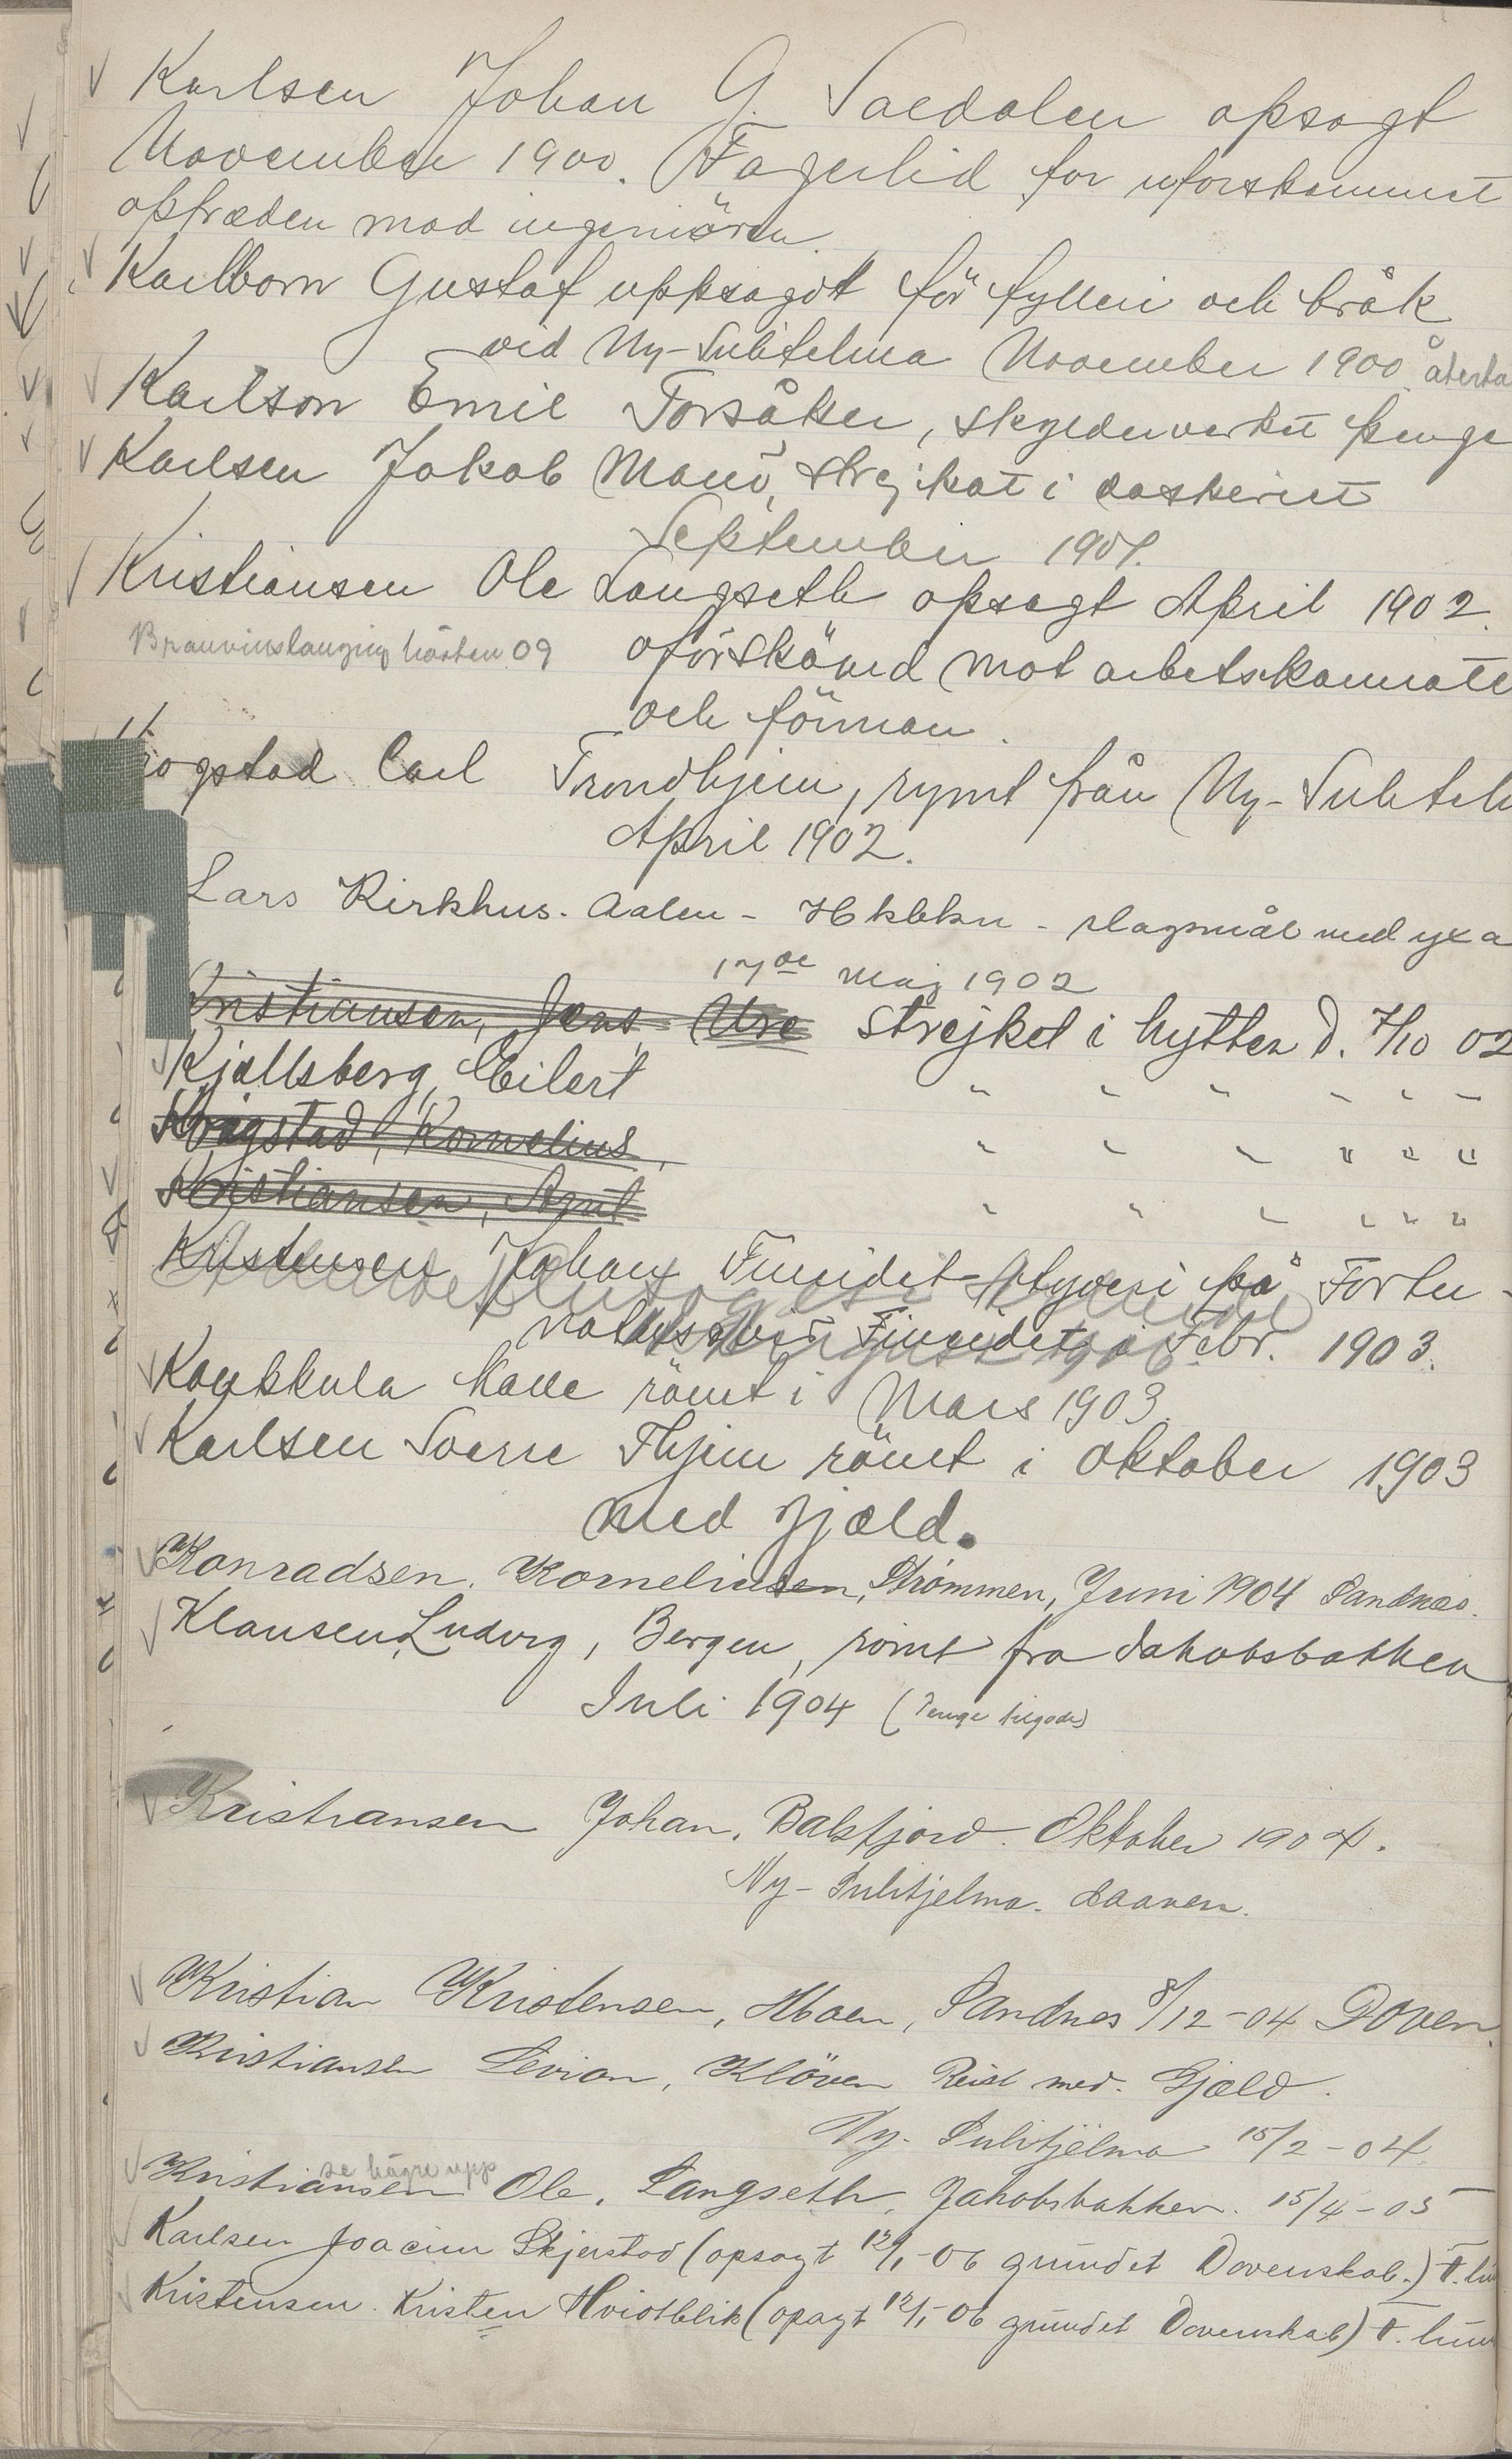 Karlsen Johan G. Saedalen opsagt
November 1900. Fagerlid for uforskammet
optræden mod ingeniören.
Karlbom Gustaf uppsagdt för fylleri och bråk
vid Ny-Sulitelma November 1900 återta
Karlson Emil Torsåker, skylder verket penge
Karlsen Jakob Manö, strejkat i vaskeriet
September 1901.
Kristiansen Ole Langseth opsagt April 1902.
Brænvinslangning hösten 09 oförskämd mot arbetskamrate
och förman.
Krogstad Carl Trondhjem, rymt från Ny-Sulitel
April 1902.
Lars Kirkhus. Aalen - Hkbkn - slagsmål med yxa
17de maj 1902
Kristiansen, Jens, Ure strejket i hytten d. 7/10 02
Kjellsberg, Eilert " " " " " "
Krogstad, Kornelius, " " " " " "
Kristiansen, Arnt " " " " " "
Kristensen Johan Finneidet tyveri på Fortu-
natus vid Finneidet i Febr. 1903.
Koukkula Kalle römt i Mars 1903.
Karlsen Sverre Thjem römt i oktober 1903
med Gjæld.
Konradsen, Korneliusen, Strömmen, Juni 1904 Sandnæs.
Klausen, Ludvig, Bergen, römt fra Jakobsbakken
Juli 1904 (Penge tilgode)
Kristiansen Johan, Balsfjord. Oktober 1904.
Ny-Sulitjelma. Laaven.
Kristian Kristensen, Moen, Sandnes 8/12-04 Doven.
Kristiansen Levion, Klöven Reist med Gjæld.
Ny-Sulitjelma 15/2-04
se högre upp
Kristiansen Ole, Langseth, Jakobsbakken. 15/4-05
Karlsen Joacim Skjerstad (opsagt 12/1-06 grundet Dovenskab.)
Kristensen. Kristen Hvidblik (opagt 12/1-06 grundet Dovenskab)